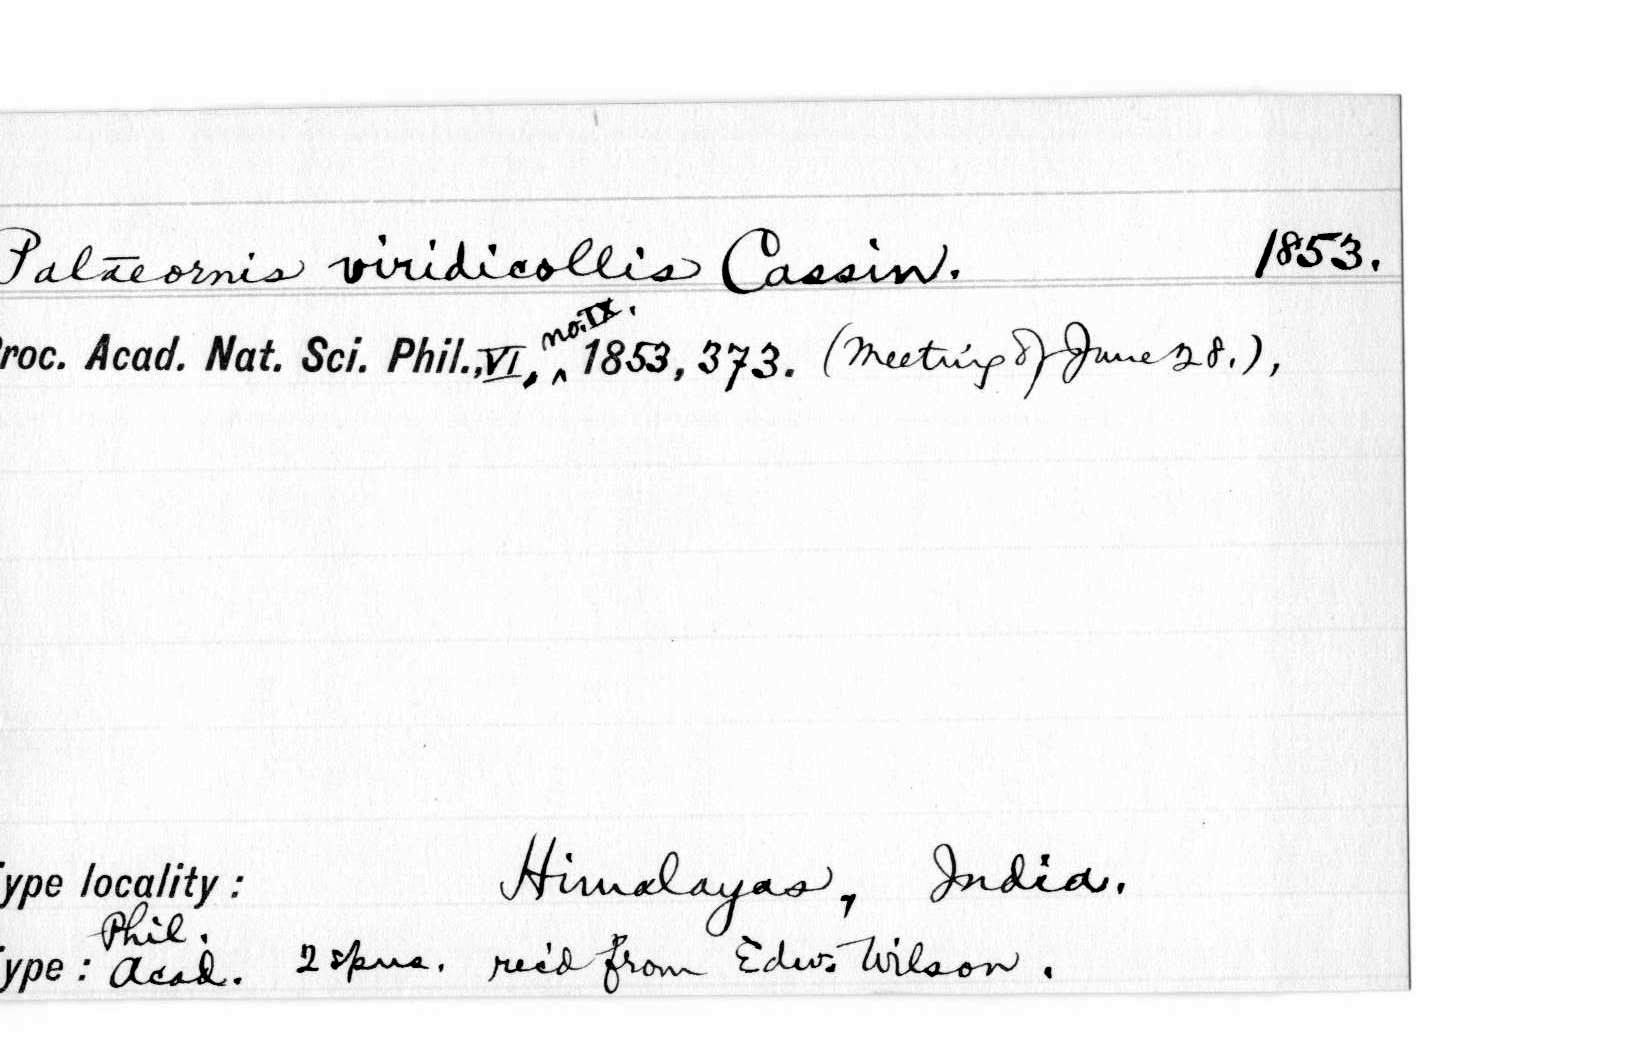 Palaeornis viridicollis Cassin. 1853.
no. IX.
roc. Acad. Nat. Sci. Phil., VI, ^ 1853, 373. (Meeting of June 28.),
ype locality : Himalayas, India.
Phil.
ype : Acad. 2 spns. rec'd from Edw. Wilson.